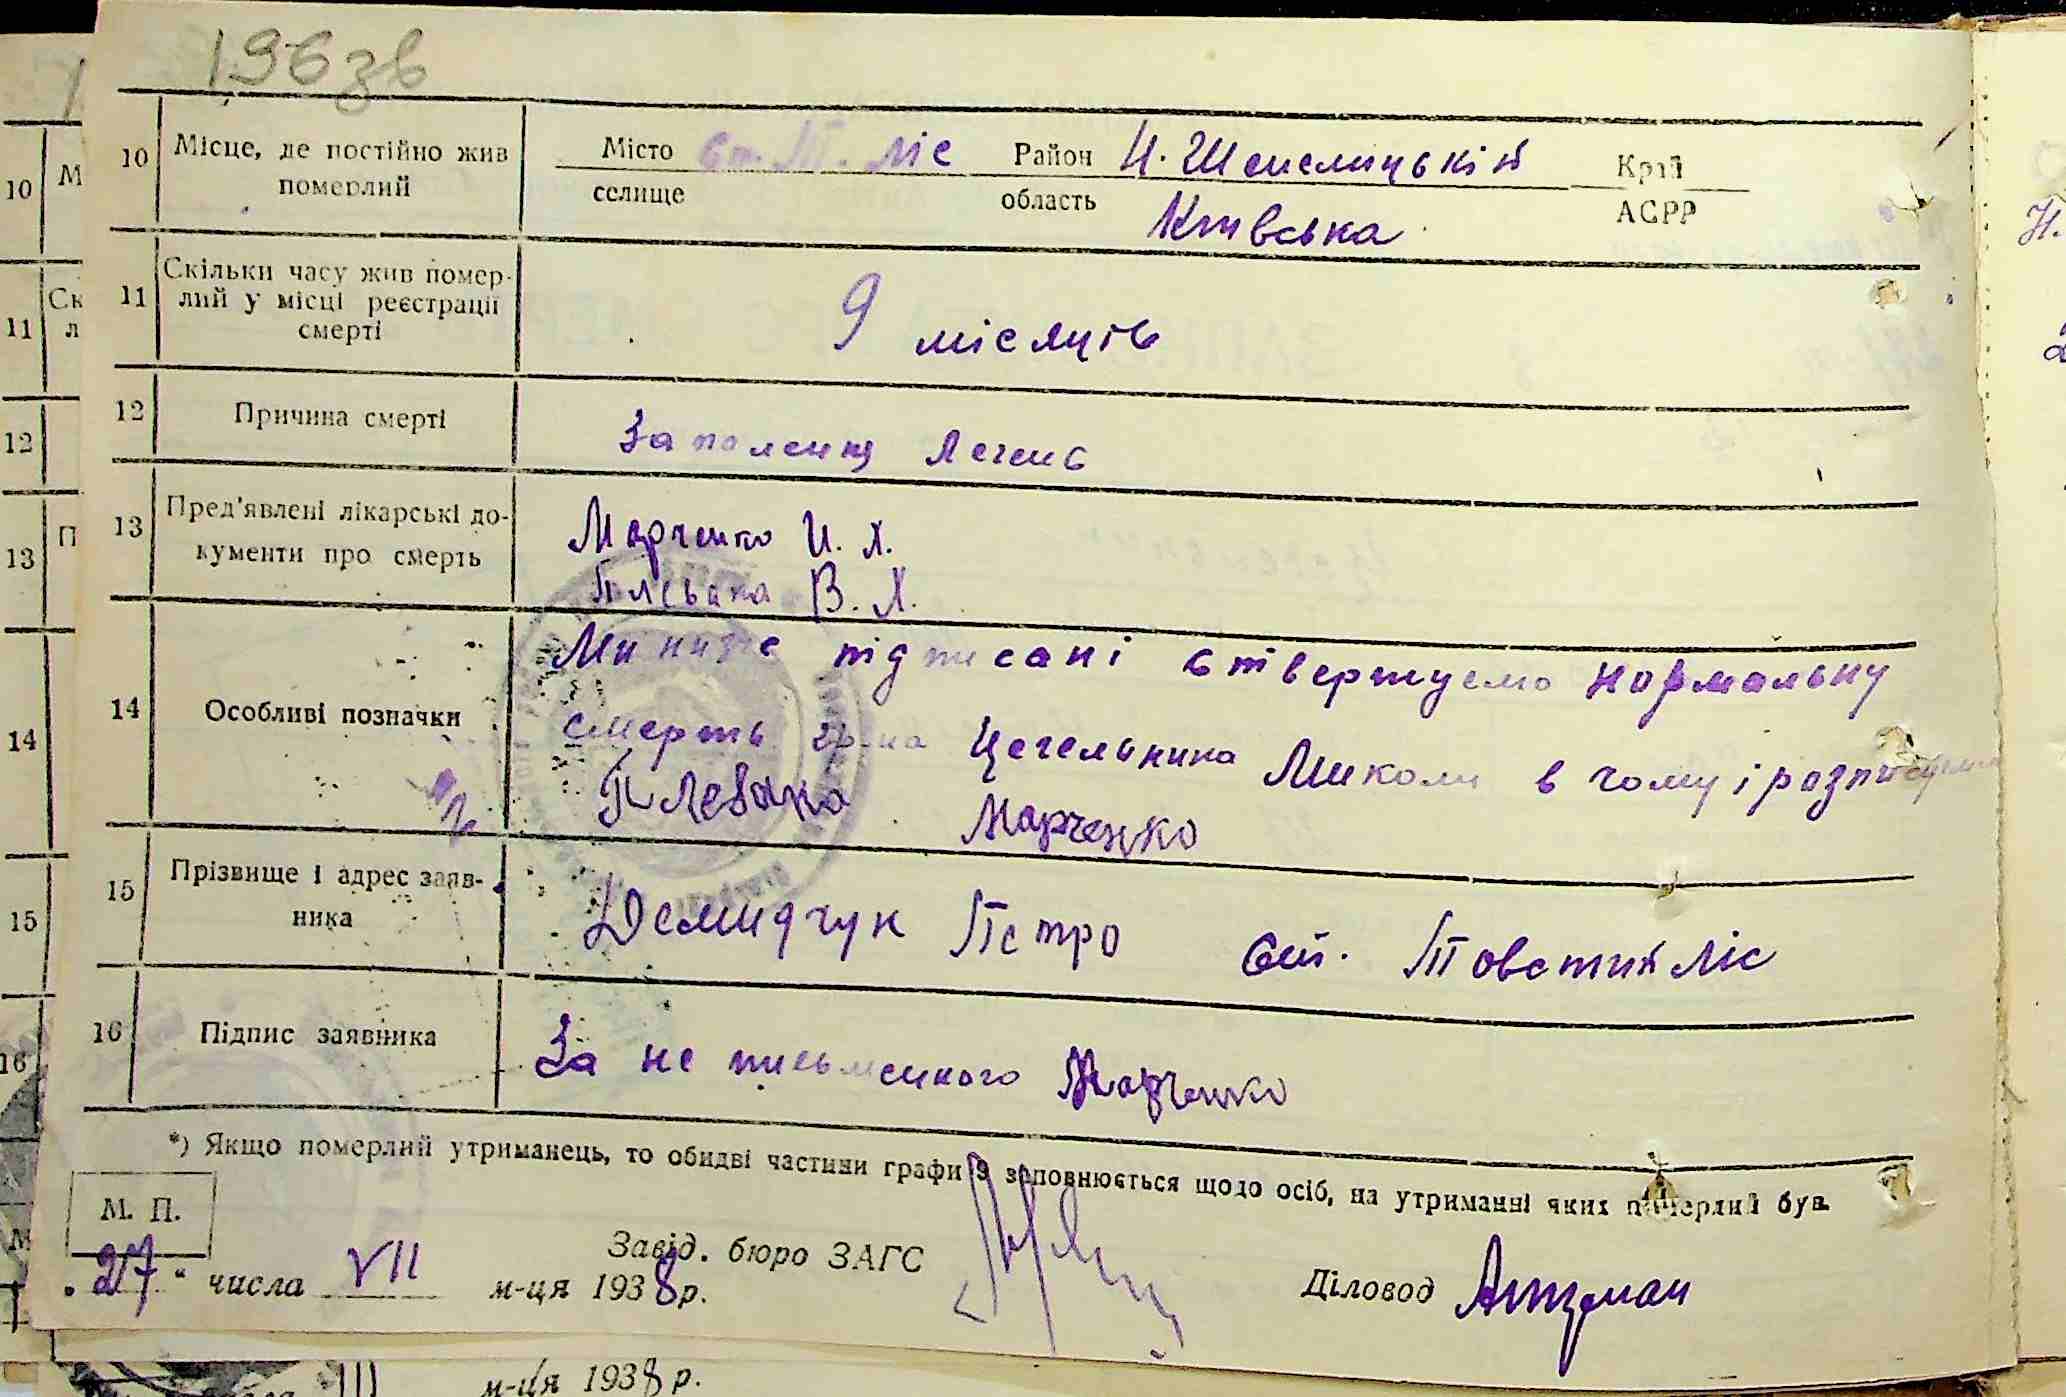 196 зв
10 Місце, де постійно жив померлий
Місто ст. Т. ліс Район Н. Шепелицький Край
селище область Київська АСРР
11 Скільки часу жив помер-
лий у місці реєстрації
смерті
9 місяців
12 Причина смерті
Запаленя Легень
13 Пред'явлені лікарські до-
кументи про смерть
Марченко И. Л.
Плевака В. Л.
14 Особливі позначки
Ми низче підписані ствержуемо нормальну
смерть гр-на Цегельника Миколи в чому і розписуемся
Плевака Марченко
15 Прізвище і адрес заяв-
ника
Демидчук Петро ст. Товстий Ліс
16 Підпис заявника
За не письменого Марченко
*) Якщо померлий утриманець, то обидві частини графи 9 заповнюється щодо осіб, на утриманні яких померлий був.
М. П.
Завід. бюро ЗАГС
„27“ числа VII м-ця 1938 р.
Діловод
10 М
11 Ск
л
12
13 П
14
15
16
м-ця 1938 р.